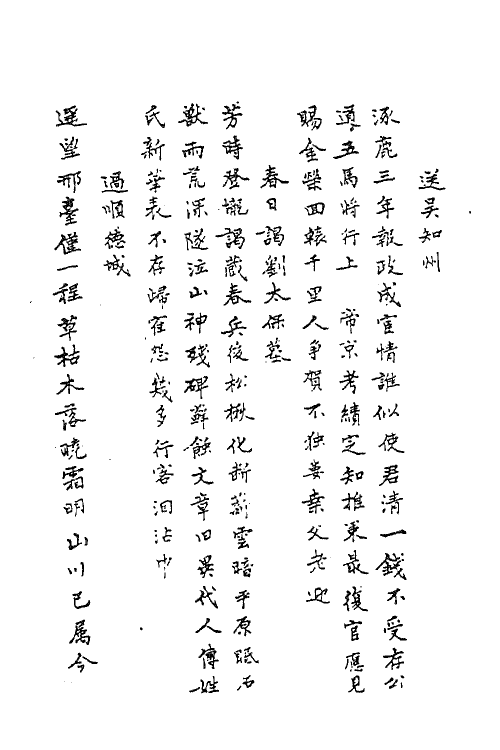 送吳知州
涿鹿三年報政成宦情誰似使君清一錢不受存公
道五馬將行上　帝京考績定知推東最復官應見
賜金榮回轅千里人爭賀不独耆耋父老迎
春日謁劉太保墓
芳時登壠謁藏春兵後松楸化断薪雲暗平原眠石
獸雨荒深隧泣山神殘碑蘚蝕文章旧異代人傳姓
氏新華表不存歸隺怨幾多行客泪沾巾
過順德城
遥望邢臺僅一程草枯木落曉霜明山川已属今